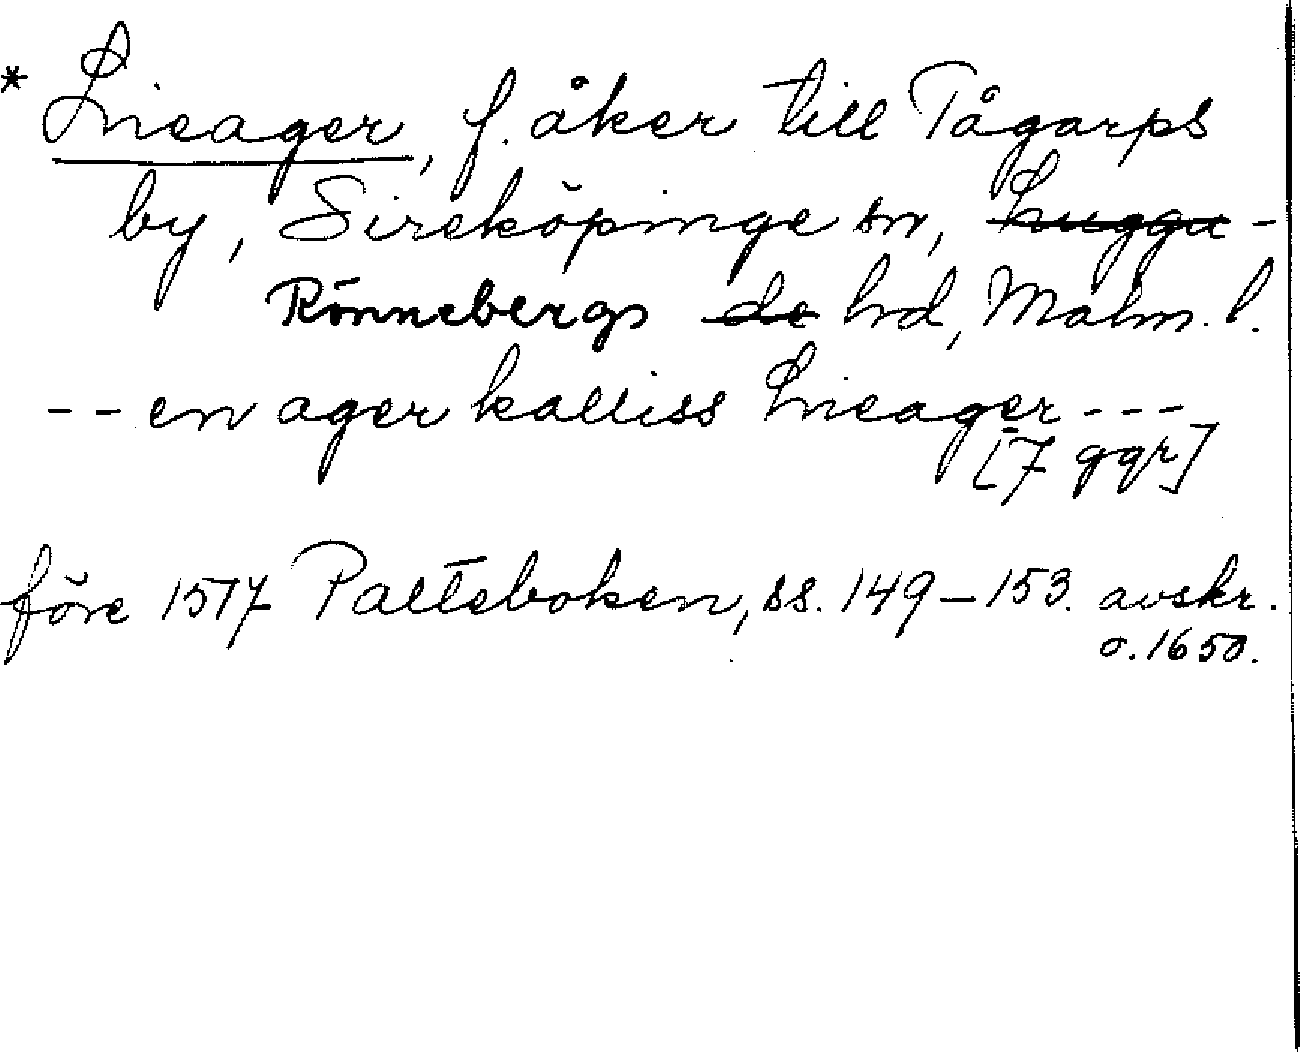 * Lineager, f. åker till Tågarps
by, Sireköpinge sn, Luggu-
Rönnebergs de hd, Malm. l.
-- en ager kalliss Lineager ---
[7 ggr]
före 1517 Palteboken, ss. 149-153. avskr.
o. 1650.